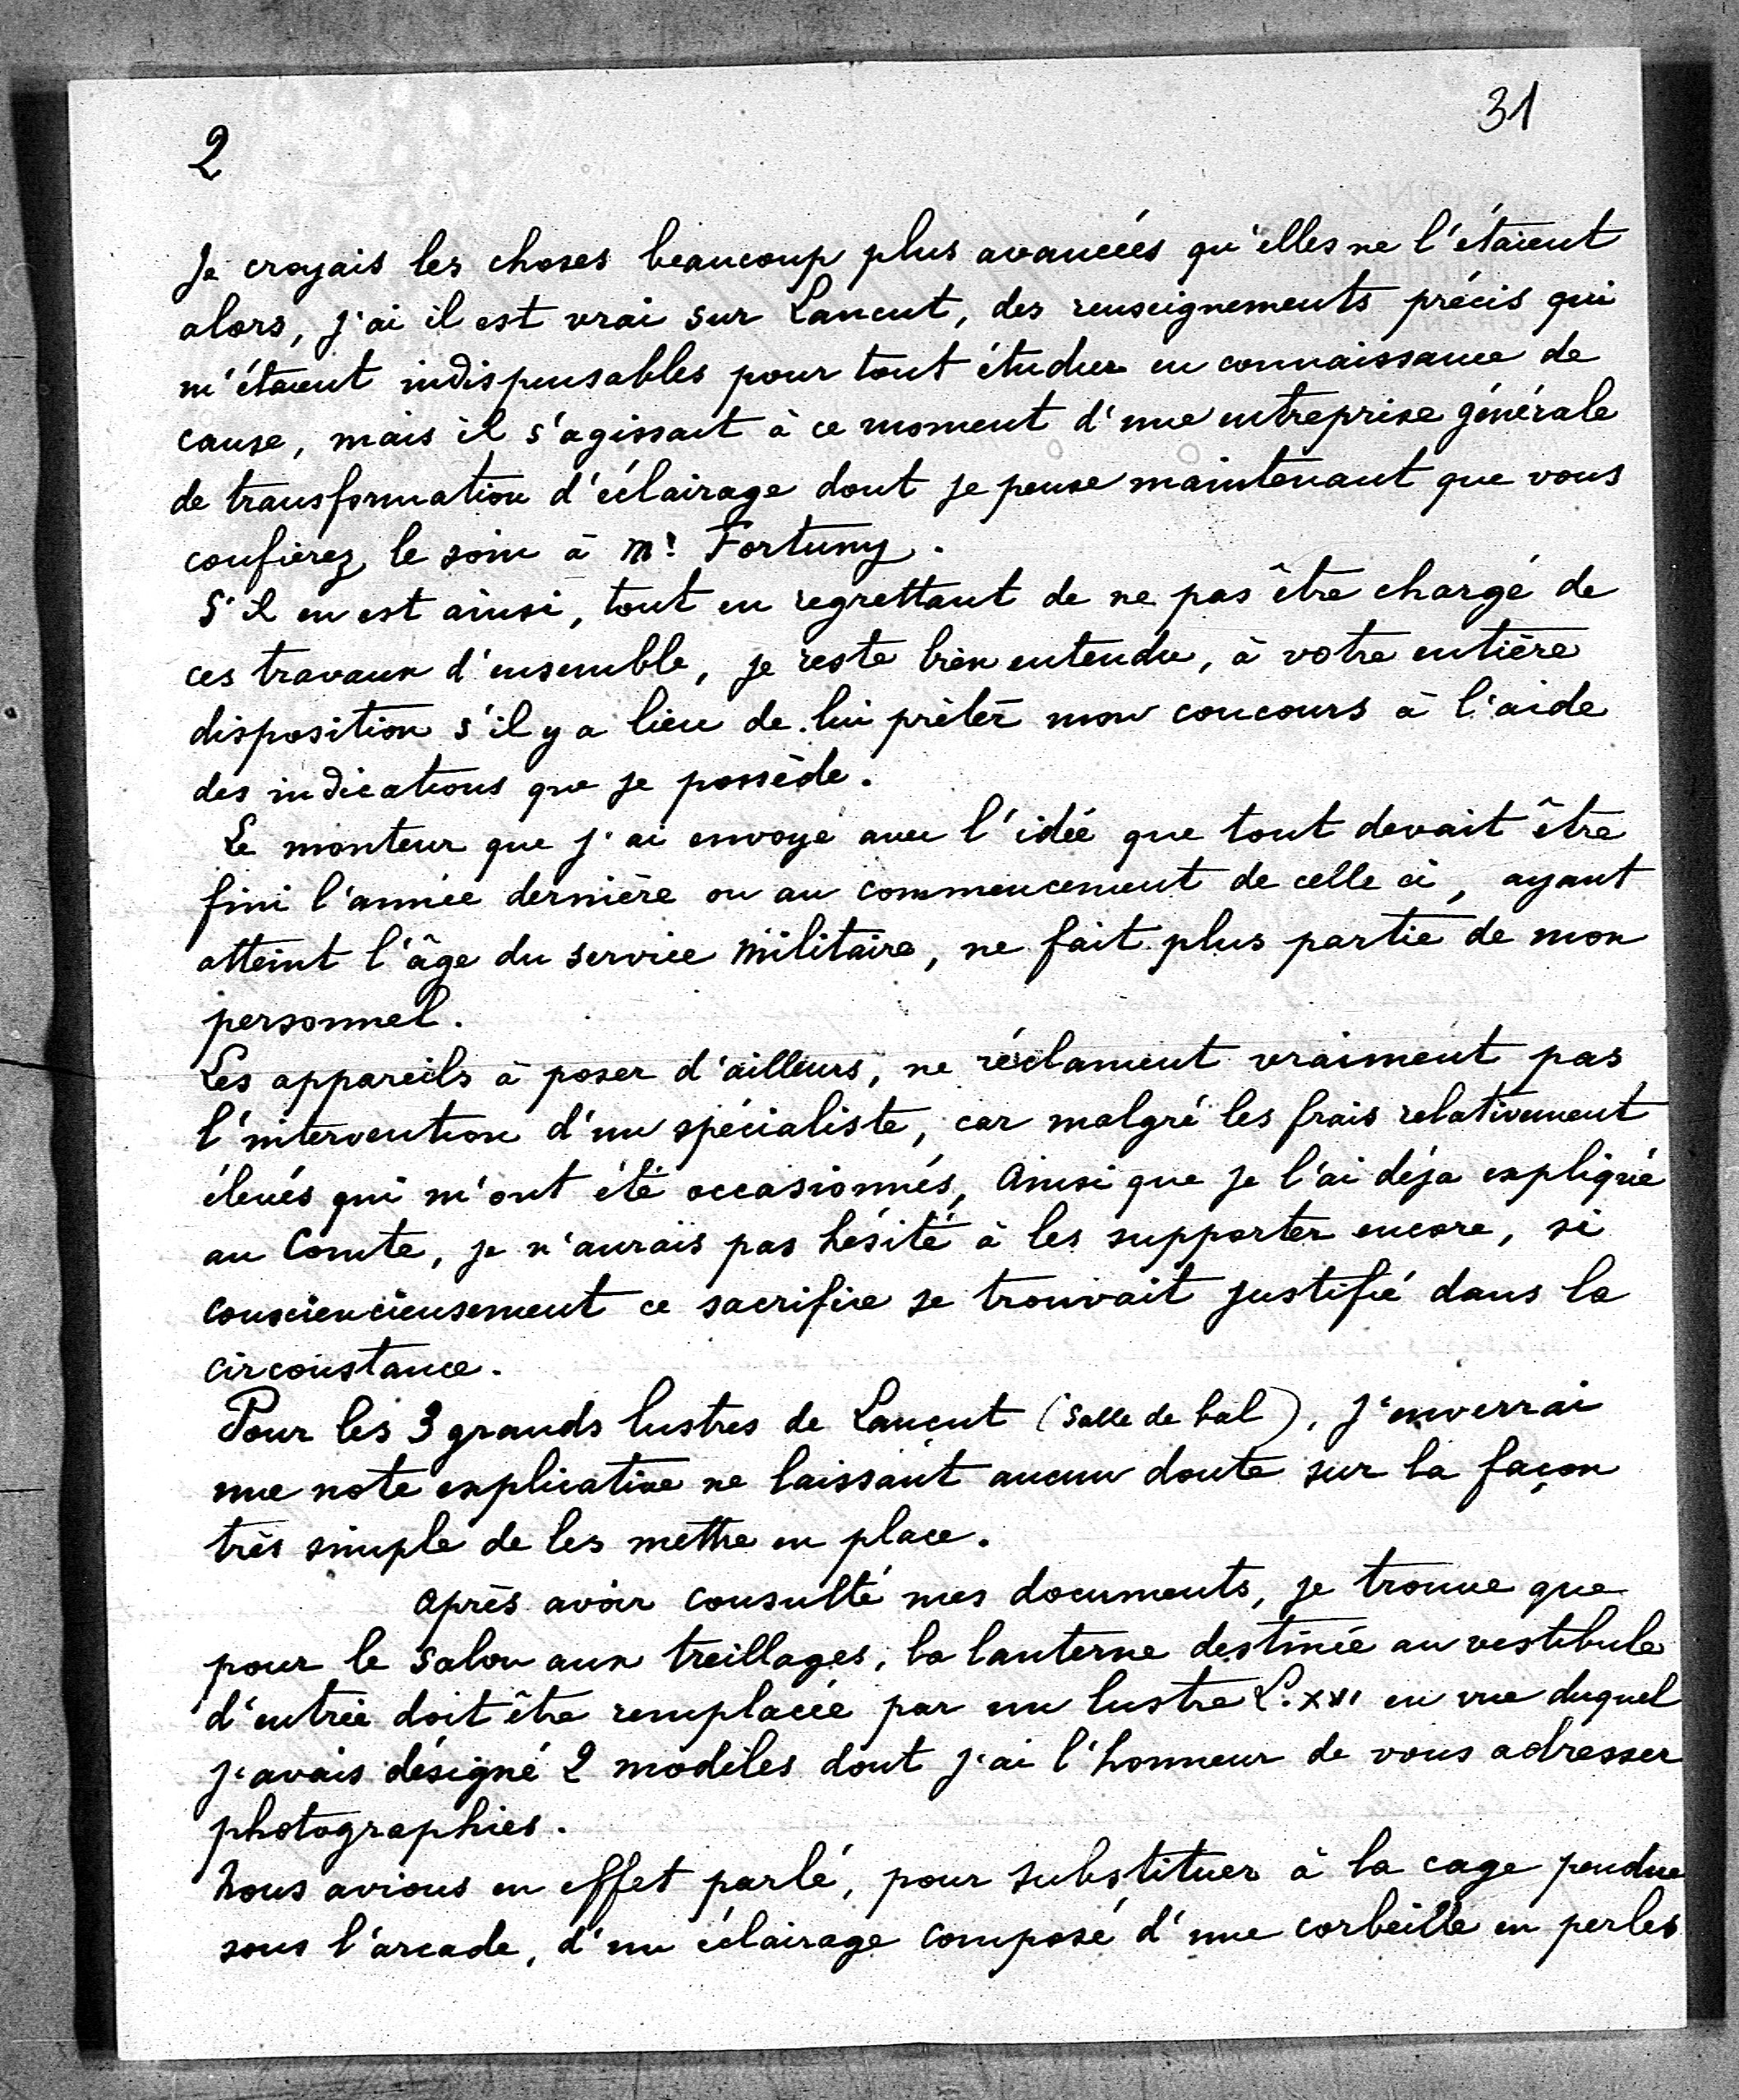 31
2
Je croyais les choses beaucoup plus avancées qu'elles ne l'étaient
alors, j'ai il est vrai sur Lancut, des renseignements précis qui
m'étaient indispensables pour tout étudier en connaissance de
cause, mais il s'agissait à ce moment d'une entreprise générale
de transformation d'éclairage dont je pense maintenant que vous
confierez le soin à Mr Fortuny.
S'il en est ainsi, tout en regrettant de ne pas être chargé de
ces travaux d'ensemble, je reste bien entendu, à votre entière
disposition s'il y a lieu de lui prêter mon concours à l'aide
des indications que je possède.
Le monteur que j'ai envoyé avec l'idée que tout devait être
fini l'année dernière ou au commencement de celle ci, ayant
atteint l'âge du service militaire, ne fait plus partie de mon
personnel.
Les appareils à poser d'ailleurs, ne réclament vraiment pas
l'intervention d'un spécialiste, car malgré les frais relativement
élevés qui m'ont été occasionnés, ainsi que je l'ai déja expliqué
au Comte, je n'aurais pas hésité à les supporter encore, si
consciencieusement ce sacrifice se trouvait justifié dans la
circonstance.
Pour les 3 grands lustres de Lancut (Salle de bal), j'enverrai
une note explicative ne laissant aucun doute sur la façon
très simple de les mettre en place.
Après avoir consulté mes documents, je trouve que
pour le Salon aux treillages, la lanterne destinée au vestibule
d'entrée doit être remplacée par un lustre L. XVI en vue duquel
j'avais désigné 2 modèles dont j'ai l'honneur de vous adresser
photographies.
Nous avions en effet parlé, pour substituer à la cage pendue
sous l'arcade, d'un éclairage composé d'une corbeille en perles